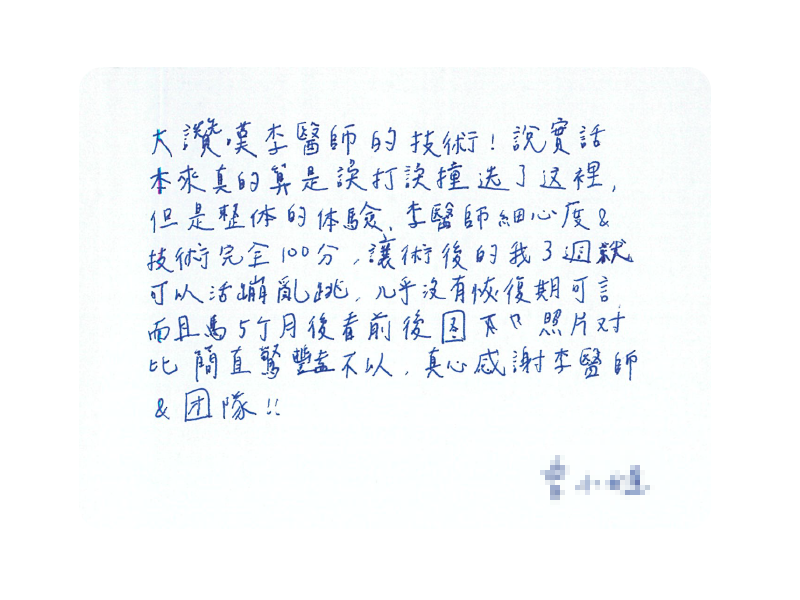 大讚嘆李醫師的技術！說實話
本來真的算是誤打誤撞选了这裡，
但是整体的体驗、李醫師細心度&
技術完全100分，讓術後的我3週就
可以活蹦亂跳，几乎沒有恢復期可言，
而且5个月後看前後图 照片对
比 簡直驚豔不以，真心感謝李醫師
& 团隊！！